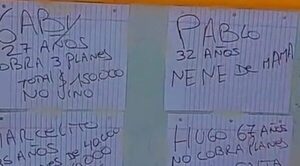 GABY
27 AÑOS
COBRA 3 PLANES
TOTAL $150000
NO VINO
PABLO
32 AÑOS
NENE DE MAMA
MARCELITO
AÑOS
HUGO 67 AÑOS
NO COBRA PLANES